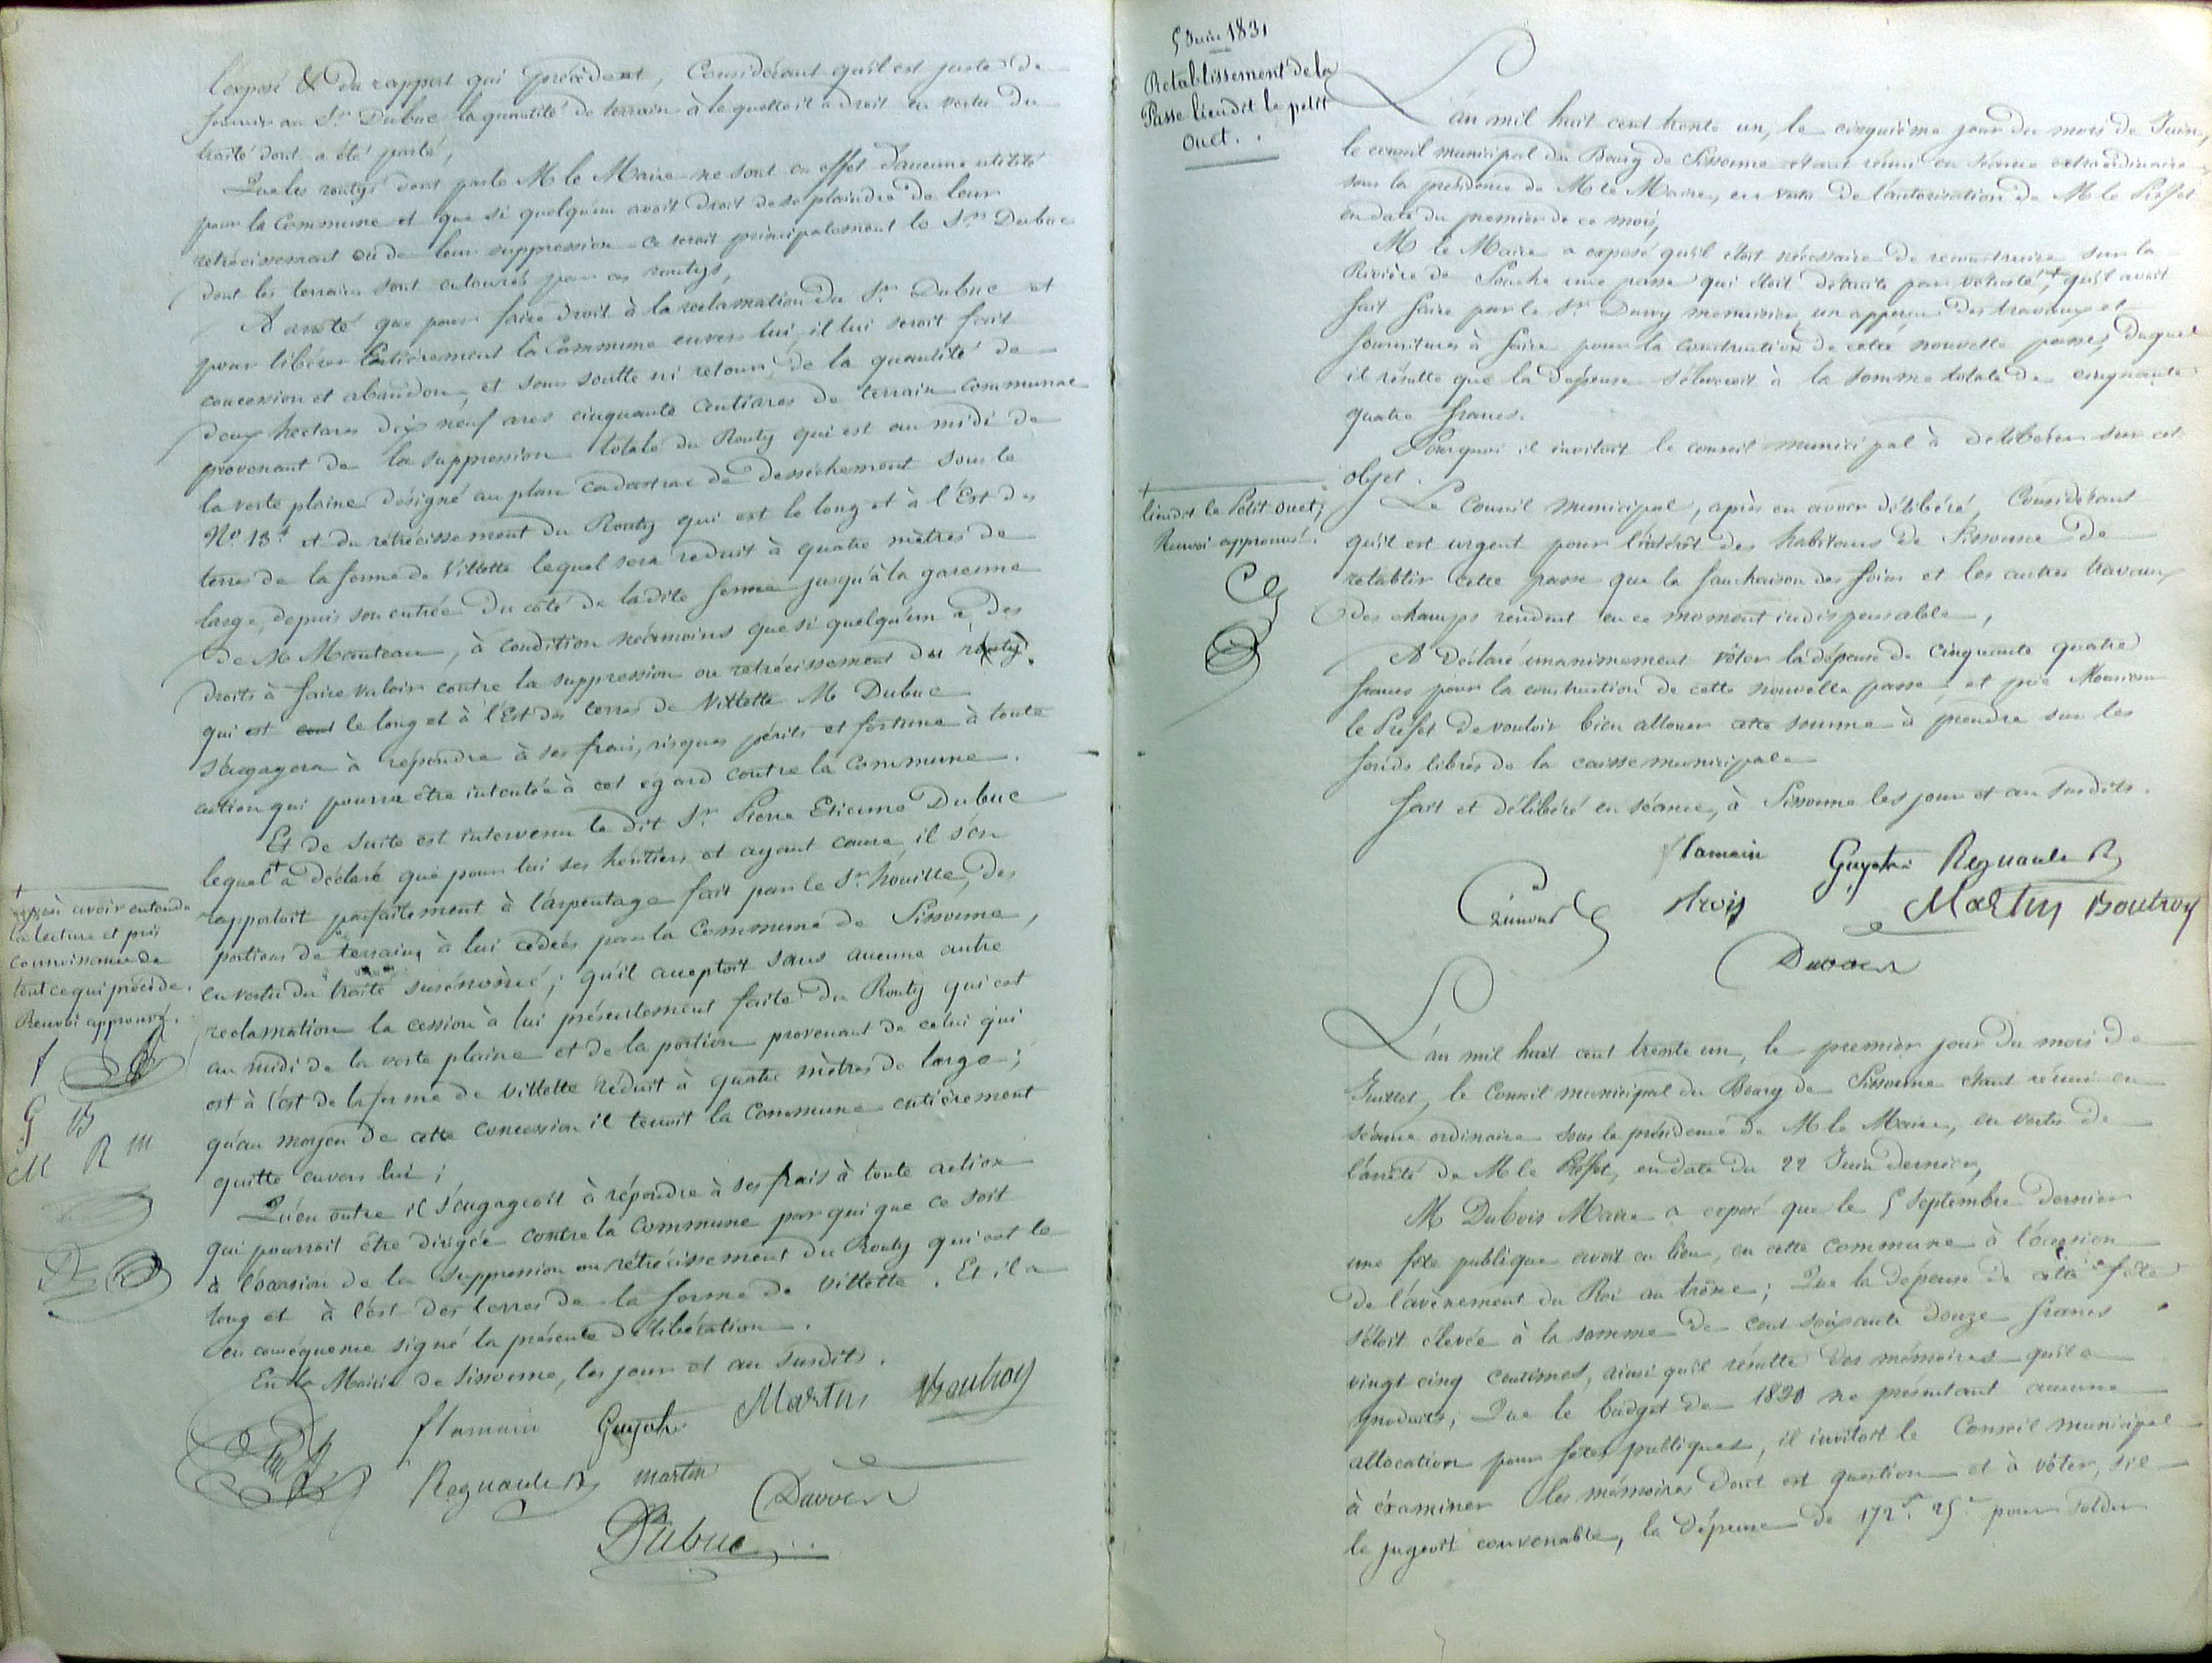 l'exposé & du rapport qui précèdent, Considérant qu'il est juste de
fournir au Sr. Dubuc la quantité de terrain à laquelle il a droit en vertu du
traité dont a été parlé,
Que les routys dont parle M le Maire ne sont en effet d'aucune utilité
pour la Commune et que si quelqu'un avoit droit de se plaindre de leur
rétrécissement ou de leur suppression ce seroit principalement le Sr. Dubuc
dont les terrains sont entourés par ces routys,
A arrêté que pour faire droit à la reclamation du Sr. Dubuc et
pour libérer Entièrement la Commune envers lui, il lui seroit fait
concession et abandon, et sans soulte ni retour, de la quantité de
deux hectares dix neuf ares cinquante centiares de terrain communal
provenant de la suppression totale du Routy qui est au midi de
la verte plaine désigné au plan cadastral de dessèchement sous le
No. 13. et du rétrécissement du Routy qui est le long et à l'Est des
terres de la ferme de Villette lequel sera réduit à quatre mètres de
large, depuis son entrée du côté de ladite ferme jusqu'à la garenne
de M Manteau, à condition néanmoins que si quelqu'un a des
droits à faire valoir contre la suppression ou retrécissement du routy
qui est le long et à l'Est des terres de Villette M Dubuc
s'engagera à répondre à ses frais, risques périls et fortune à toute
action qui pourra être intentée à cet égard contre la Commune.
Et de suite est intervenu le dit Sr. Pierre Etienne Dubuc
lequel + a déclaré que pour lui ses héritiers et ayant cause il s'en
rapportoit parfaitement à l'arpentage fait par le Sr. houille, des
portions de terrains à lui cédées par la Commune de Sissonne,
en vertu du traité susénoncé; qu'il acceptoit sans aucune autre
reclamation la cession à lui présentement faite du Routy qui est
au midi de la verte plaine et de la portion provenant de celui qui
est à l'est de la ferme de Villette réduit à quatre mètres de large;
qu'au moyen de cette concession il tenoit la Commune entièrement
quitte envers lui;
Qu'en outre il s'engageoit à répondre à ses frais à toute action
qui pourroit être dirigée contre la Commune par qui que ce soit
à l'occasion de la suppression ou rétrécissement du Routy qui est le
long et à l'est des terres de la ferme de Villette. Et il a
en conséquence signé la présente délibération.
En la Mairie de Sissonne, les jour et an susdits.
flamain Guyot Martin Boutroy
Regnault martin Davoen
Dubuc
+
après avoir entendu
la lecture et pris
connoissance de
tout ce qui précède.
Renvoi approuvé.
f
G B
M R m
5 Juin 1831
Retablissement de la
Passe lieudit le petit
Ouet.
L'an mil huit cent trente un, le cinquième jour du mois de Juin,
le conseil municipal du Bourg de Sissonne étant réuni en séance extraordinaire
sous la présidence de M le Maire, en vertu de l'autorisation de M le Préfet
en date du premier de ce mois,
M le Maire a exposé qu'il étoit nécessaire de reconstruire sur la
Rivière de Souche une passe qui étoit détruite par vétusté, + qu'il avoit
fait faire par le Sr. Durry menuisier, un apperçu des travaux et
fournitures à faire pour la construction de cette nouvelle passe, duquel
il résulte que la dépense s'éleveroit à la somme totale de cinquante
quatre francs.
Pourquoi il invitoit le conseil municipal à délibérer sur cet
objet.
Le Conseil municipal, après en avoir délibéré, Considérant
qu'il est urgent pour l'intérêt des habitans de Sissonne de
retablir cette passe que la fauchaison des foins et les autres travaux
des champs rendent en ce moment indispensable,
A Déclaré unanimement voter la dépense de Cinquante quatre
francs pour la construction de cette nouvelle passe, et prie Monsieur
le Préfet de vouloir bien allouer cette somme à prendre sur les
fonds libres de la caisse municipale
fait et délibéré en séance, à Sissonne les jour et an susdits.
flamain Guyot Regnault
Martin Boutroy
Davoen
+
lieudit le Petit Ouet;
Renvoi approuvé.
L'an mil huit cent trente un, le premier jour du mois de
Juillet, le Conseil municipal du Bourg de Sissonne étant réuni en
séance ordinaire sous la présidence de M le Maire, en vertu de
l'arrêté de M le Préfet, en date du 22 Juin dernier,
M Dubois Maire a exposé que le 5 Septembre dernier
une fête publique avoit eu lieu, en cette commune à l'occasion
de l'avènement du Roi au trône; Que la dépense de cette fête
s'étoit élevée à la somme de cent soixante douze francs
vingt cinq centimes, ainsi qu'il résulte des mémoires qu'il a
produits; Que le budget de 1830 ne présentant aucune
allocation pour fêtes publiques, il invitoit le Conseil municipal
à examiner les mémoires dont est question et à vôter, s'il
le jugeoit convenable, la dépense de 172f. 25c pour solder